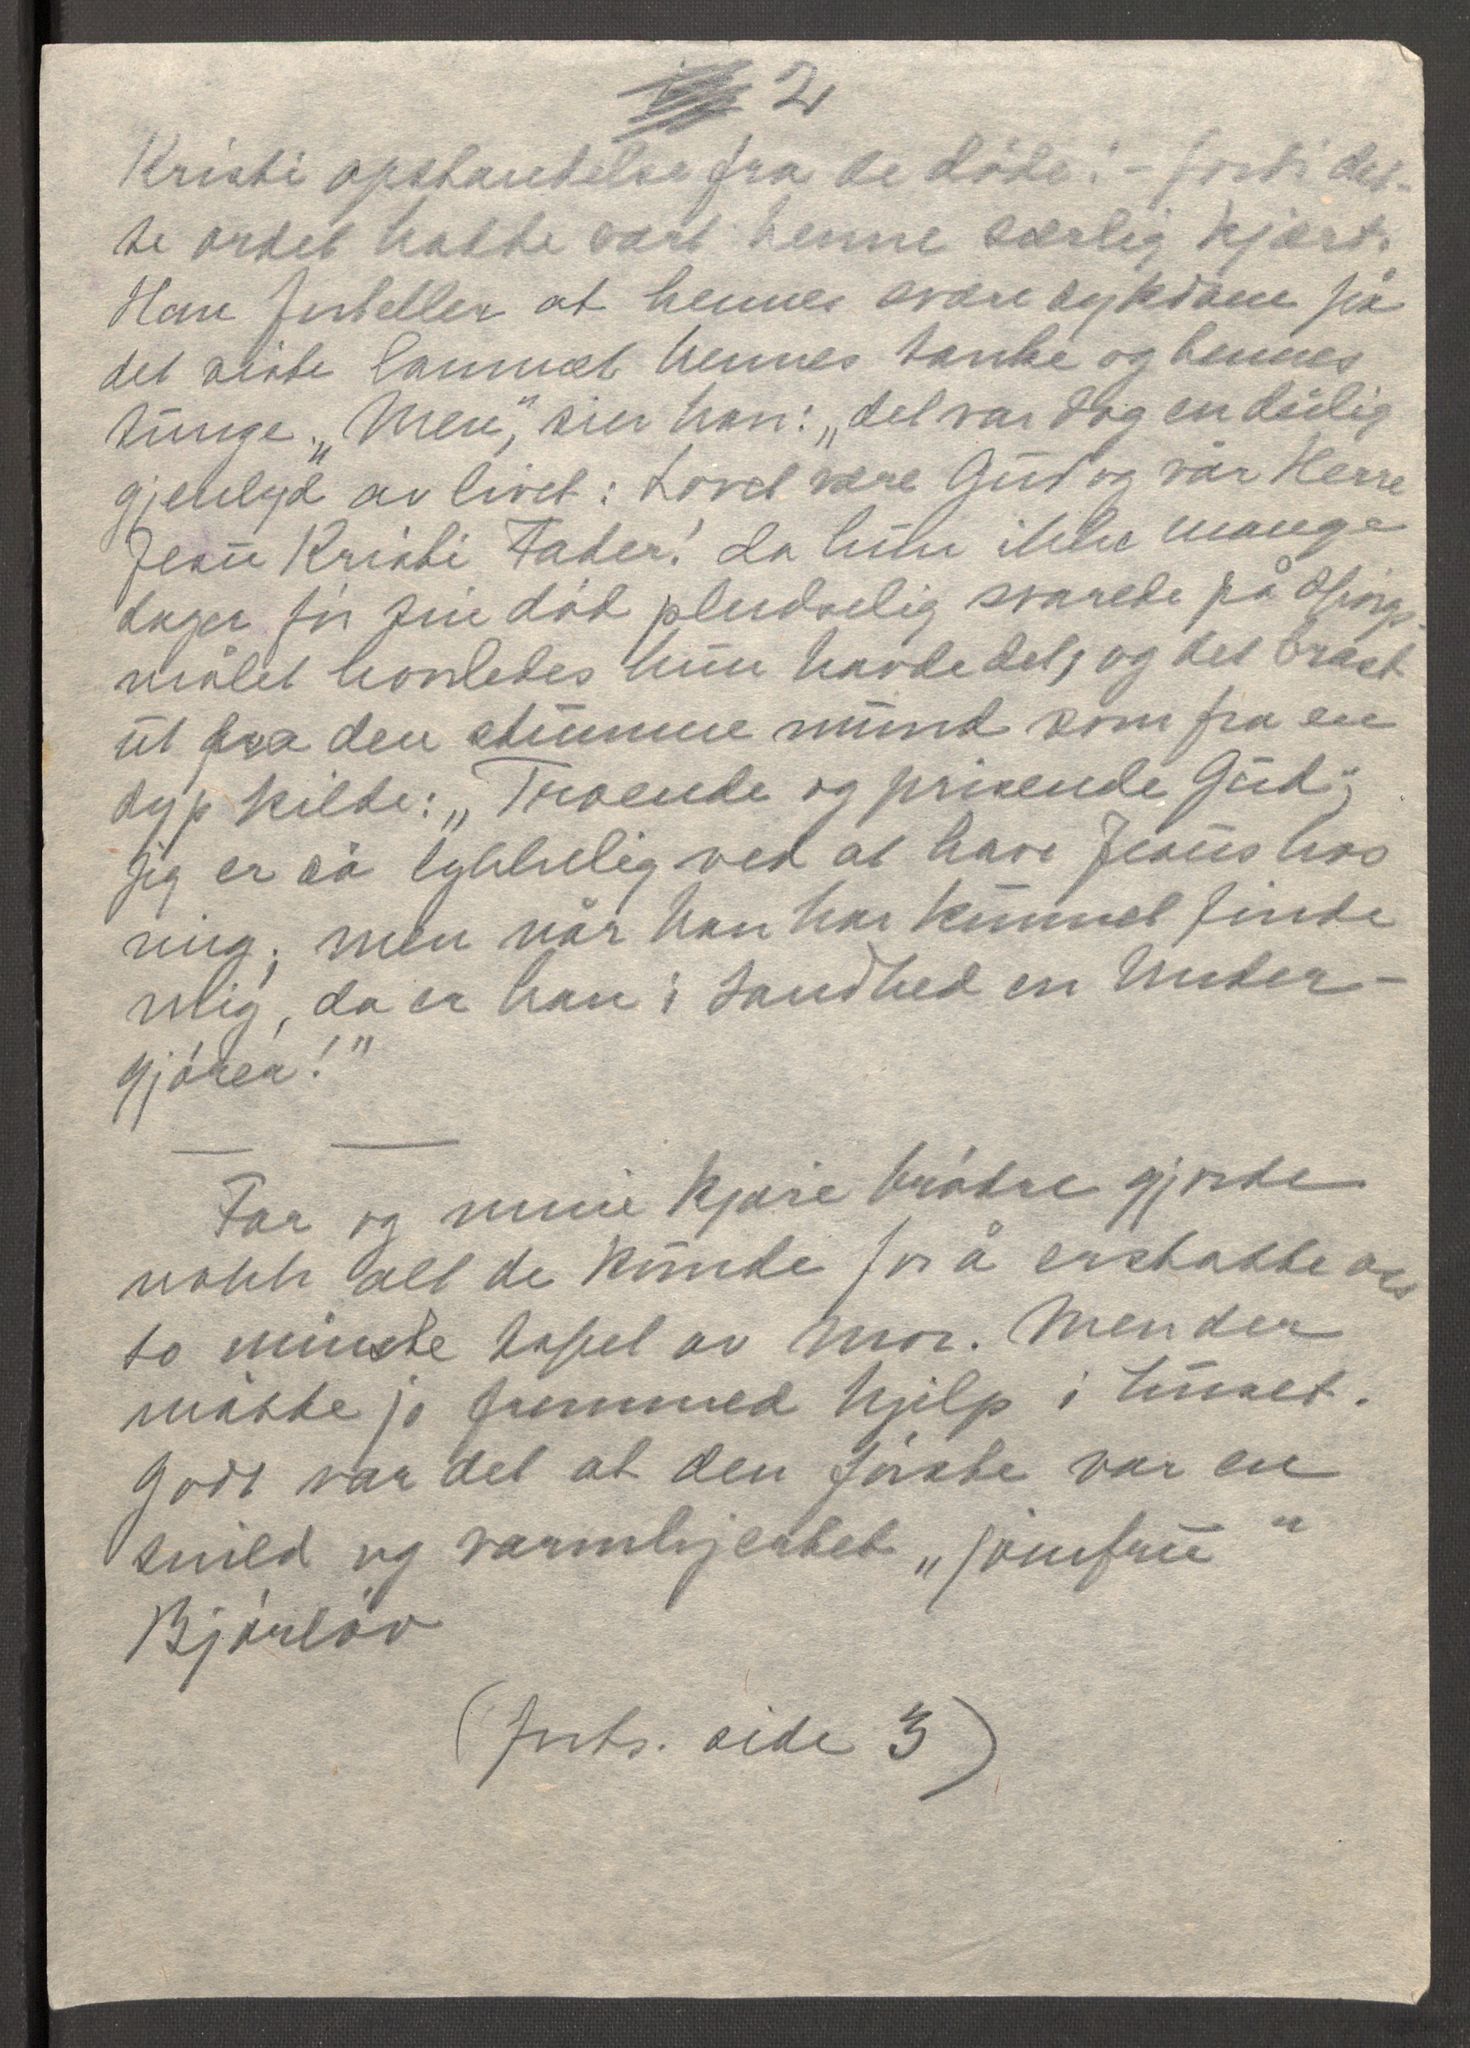 2
Kristi opstandelse fra de døde! - fordi det-
te ordet hadde vært henne særlig kjært.
Han forteller at hennes svære sykdom på
det siste lammet hennes tanke og hennes
tunge. „Men", sier han: „det var dog en deilig
gjenlyd av livet: Lovet være Gud og vår Herre
Jesu Kristi Fader! da hun ikke mange
dager før sin død pludselig svarede på spørgs-
målet hvorledes hun havde det, og det brast
ut fra den stumme mund som fra en
dyp kilde: „Troende og prisende Gud;
jeg er så lykkelig ved at have Jesus hos
mig; men når han har kunnet finde
mig, da er han i Sandhed en Under-
gjører!"
Far og mine kjære brødre gjorde
nokk alt de kunde for å erstatte oss
to minste tapet av Mor. Men der
måtte jo fremmed hjelp i huset.
Godt var det at den første var en
snild og varmhjertet „jomfru"
Bjørløv
(forts. side 3)